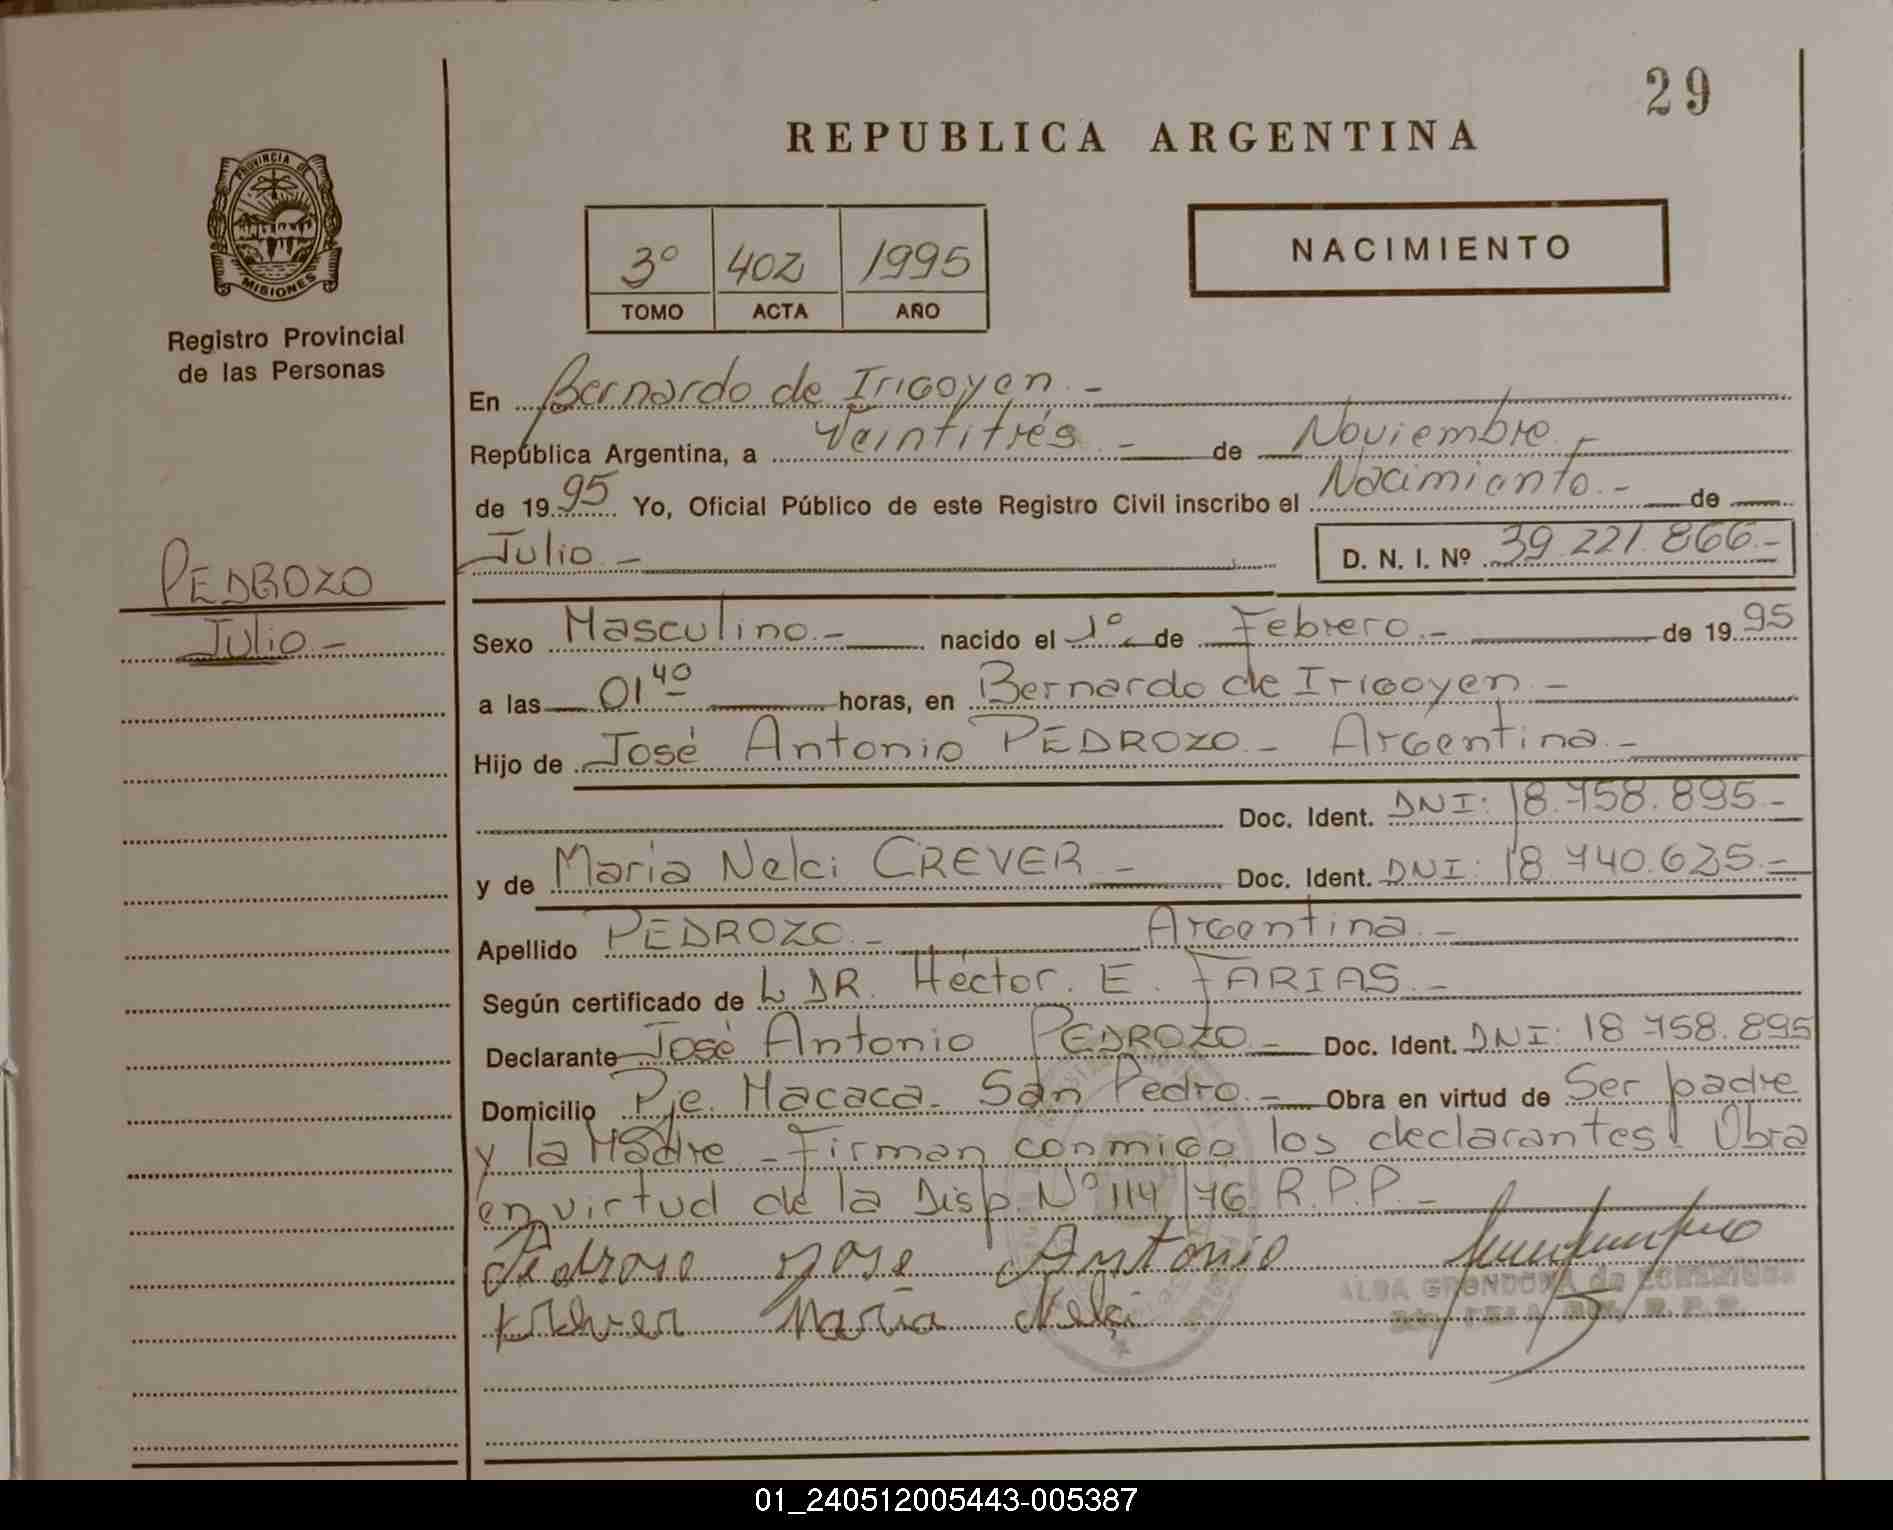 29
REPUBLICA ARGENTINA
PROVINCIA DE
MISIONES
Registro Provincial
de las Personas
3º 402 1995
TOMO ACTA AÑO
NACIMIENTO
En Bernardo de Irigoyen.-
República Argentina, a Veintitrés.- de Noviembre.-
de 1995 Yo, Oficial Público de este Registro Civil inscribo el Nacimiento.- de
Julio.- D. N. I. Nº 39.221.866.-
PEDROZO
Julio.-
Sexo Masculino.- nacido el 1º de Febrero.- de 1995
a las 01 40 horas, en Bernardo de Irigoyen.-
Hijo de José Antonio PEDROZO.- Argentina.-
Doc. Ident. DNI: 18.758.895.-
y de Maria Nelci CREVER.- Doc. Ident. DNI: 18.740.625.-
Apellido PEDROZO.- Argentina.-
Según certificado de L DR. Héctor. E. FARIAS.-
Declarante José Antonio PEDROZO.- Doc. Ident. DNI: 18.758.895
Domicilio Pje. Macaca. San Pedro.- Obra en virtud de Ser padre
y la Madre.- Firman conmigo los declarantes. Obra
en virtud de la Disp. Nº 114/76 R.P.P.-
Pedroso Jose Antonio
Maria Nelci
ALBA GRONDONA de
01_240512005443-005387